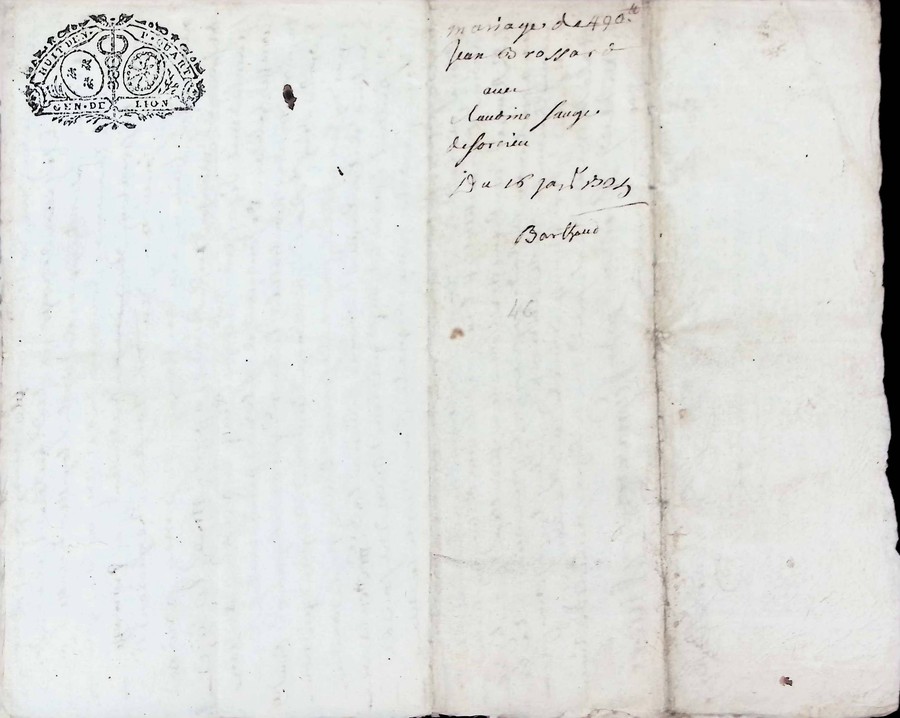 HUIT DEN. E. QUART
GEN. DE LION
mariage de 490 tt
Jean Brossard
avec
Claudine Sauge
de sorcieu
Du 16 Jar
Barthaud
46